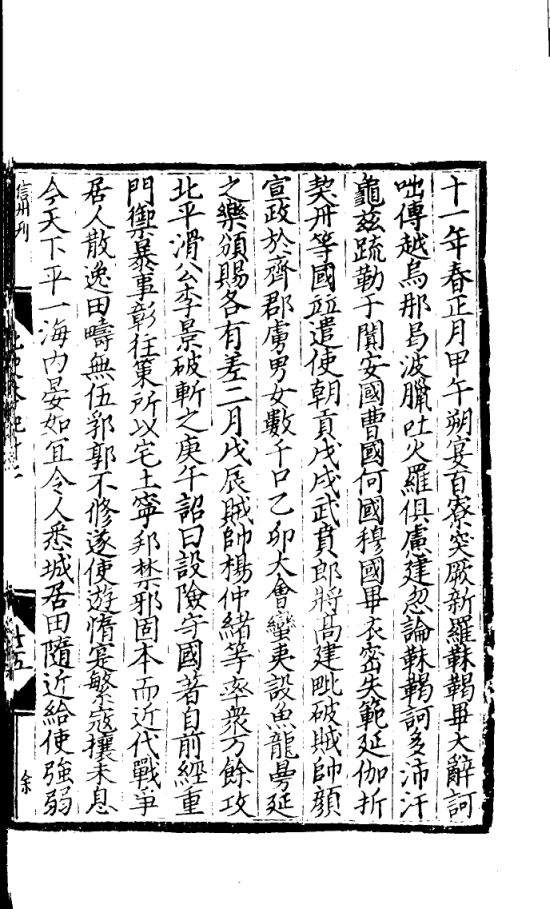 十一年春正月甲午朔宴百寮突厥新羅靺鞨畢大辭訶
咄傳越烏那曷波臘吐火羅俱慮建忽論靺鞨訶多沛汗
龜兹疏勒于闐安國曹國何國穆國畢衣密失範延伽折
契丹等國並遣使朝貢戊戌武賁郎將髙建毗破賊帥顔
宣政於齊郡虜男女數千口乙卯大會蠻夷設魚龍曼延
之樂頒賜各有差二月戊辰賊帥楊仲緒等率衆万餘攻
北平滑公李景破斬之庚午詔曰設險守國著自前經重
門禦暴事彰往策所以宅土寧邦禁邪固本而近代戰爭
居人散逸田疇無伍郛郭不修遂使遊惰寔繁寇攘未息
今天下平一海内晏如宜令人悉城居田隨近給使強弱
信州刋
十五
余